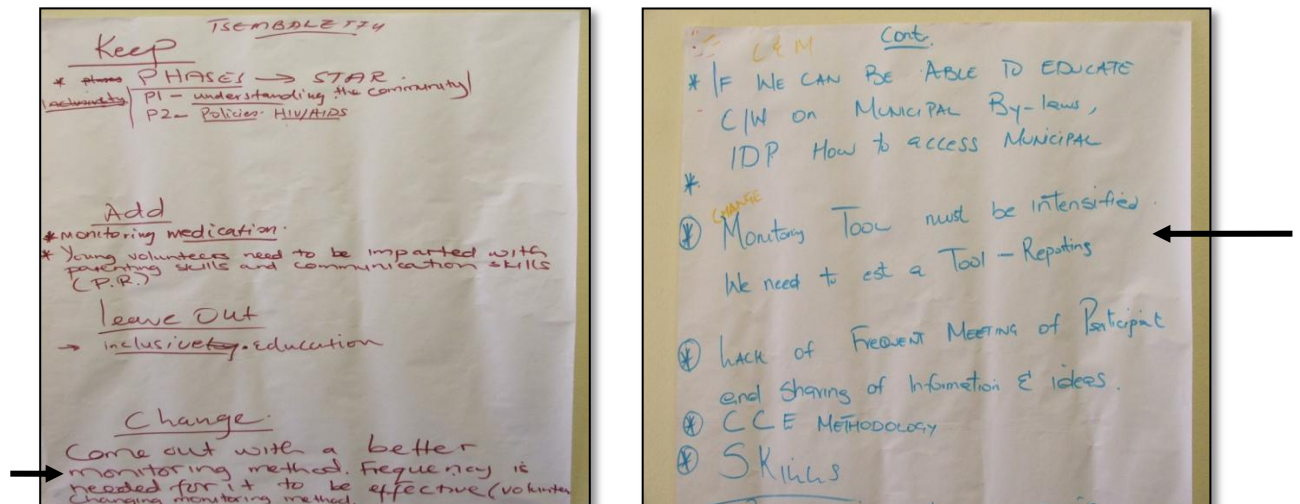 TSEMBALETTU
Keep
* PHASES → STAR
P1 - understanding the community
P2 - Policies. HIV/AIDS
Add
* monitoring medication.
* Young volunteers need to be imparted with
parenting skills and communication skills
(P.R.)
leave Out
→ inclusive education
Change.
Come out with a better
monitoring method. Frequency is
needed for it to be effective (volunteer
Changing monitoring method.
Cont.
C & M
* IF WE CAN BE ABLE TO EDUCATE
C/W on MUNICIPAL By-laws,
IDP How to access MUNICIPAL
*
CHANGE
* Monitoring Tool must be intensified.
We need to est a Tool - Reporting
* LACK of FREQUENT MEETING of Participant
and sharing of Information & ideas.
* CCE METHODOLOGY
* Skills